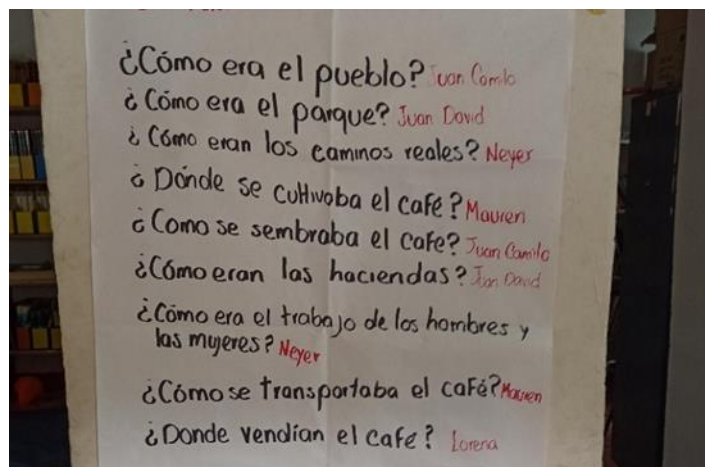 ¿Cómo era el pueblo? Juan Camilo
¿Cómo era el parque? Juan David
¿Cómo eran los caminos reales? Neyer
¿Dónde se cultivaba el café? Mauren
¿Como se sembraba el cafe? Juan Camilo
¿Cómo eran las haciendas? Juan David
¿Cómo era el trabajo de los hombres y
las mujeres? Neyer
¿Cómo se transportaba el café? Mauren
¿Donde vendían el cafe? Lorena